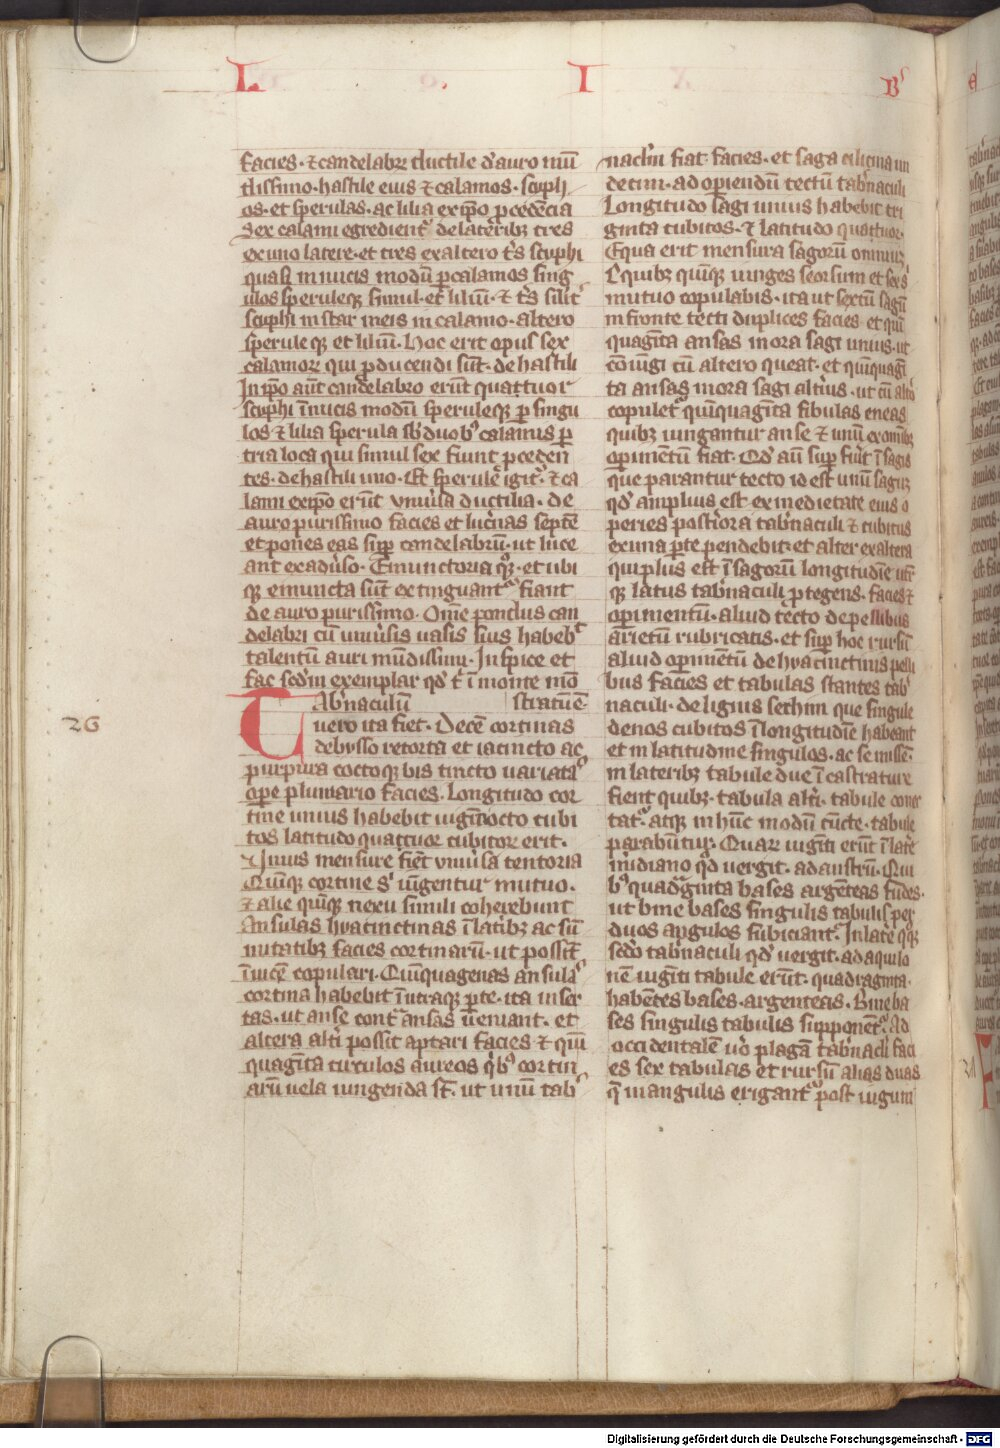 L I Bˢ
facies · ⁊ candelabꝝ ductile d'auro mū
dissimo · hastile eius ⁊ calamos · scyph
os · et sperulas · ac lilia ex ip̄o p̄cedēcia
Sex calami egredient᷑ de laterib; tres
ex uno latere · et tres ex altero t̄s scyphi
quasi in nucis modū p̲ calamos sing
ulos speruleq; simul · et liliū · ⁊ t̄s silit᷑
scyphi instar ineis in calamo · altero
sperule q; et liliū · Hoc erit opus sex
calamoꝝ qui p̲ducendi sūt · de hastili
In ip̄o aūt candelabro erūt quattuor
scyphi ī nucis modū speruleq; p̲ singu
los ⁊ lilia sperula sb' duobꝰ calamis p̲
tria loca qui simul sex fiunt p̲ceden
tes · de hastili uno · Et sperule igit᷑ · ⁊ ca
lami ex ip̄o erūt vniu'sa ductilia · de
auro purissimo facies et luc'nas septē
et pones eas sup̲ candelabrū · ut luce
ant ex adu'so · Emunctoria q; · et ubi
q; emuncta sūt extinguant᷑ fiant
de auro purissimo · Om̄e pondus can
delabri cū uniu'sis uasis suis habeb᷑
talentū auri mūdissimi · Inspice et
fac scd'm exemplar qd' t' ī monte mō
Tab'naculū stratum ē ·
26
uero ita fiet · Decē cortinas
de bysso retorta et iacincto ac
purpura coctoq; bis tincto uariatas
op̲e plumario facies · Longitudo cor
tine unius habebit uigīti octo cubi
tos latitudo quattuor cubitoꝝ erit ·
Unius mensure fiēt vniu'sa tentoria
Quīq; cortine s' iūgentur mutuo ·
⁊ alie quīq; nexu simili coherebunt
Ansulas hyacinctinas ī latib; ac sū
mitatib; facies cortinarū · ut possīt
īuicē copulari · Quīquagenas ansulas
cortina habebit ī utraq; p̲te · ita inser
tas · ut anse cont᷑ ansas ueniant · et
altera alt'i possit aptari facies ⁊ quī
quagīta circulos aureos q'bꝰ cortin
arū uela iungenda st̄ · ut unū tab'
nacl'm fiat facies · et saga cilicina un
decim · ad operiendū tectū tab'naculi
Longitudo sagi unius habebit tri
ginta cubitos · ⁊ latitudo quattuor ·
Equa erit mensura sagorū omniū
E quib; quīq; iunges seorsum et sex s'
mutuo copulabis · ita ut sextū sagū
in fronte tecti duplices facies et quī
quagīta ansas in ora sagi unius · ut
cōiūgi cū altero queat · et quīquagī
ta ansas in ora sagi alt'ius · ut cū alt'o
copulet᷑ quīquagīta fibulas eneas
quib; iungantur anse ⁊ unū ex omīb;
op̲imētum fiat · Qd' aū sup̲ fu'it ī sagis
que parantur tecto id est unū sagū
qd' amplius est ex medietate eius o
peries post'iora tab'naculi ⁊ cubitus
ex una p̲te pendebit · et alter ex altera
qui plus est ī sagorū longitudīe utr̄
q; latus tab'naculi p̲tegens · facies ⁊
op̲imentum · aliud tecto de pellibus
arietū rubricatis · et sup̲ hoc rursū
aliud op̲imētū de hyacinctinis pelli
bus facies et tabulas stantes tab'
naculi · de lignis sethim que singule
denos cubitos ī longitudīe habeant
et in latitudine singulos · ac semissē ·
in laterib; tabule due ī castrature
fient quib; · tabula alt'i · tabule conec
tat᷑ · atq; in hūc modū cūcte · tabule
parabūtur · Quaꝝ uigīti erūt ī late
m'idiano qd' uergit · ad austrū · Qui
bꝰ quadraginta bases argēteas fūdes ·
ut bine bases singulis tabulis per
duos angulos subiciant᷑ · In late q;
sedo tab'naculi qd' uergit · ad aquilo
nē uigīti tabule erūt · quadraginta ·
habētes bases · argenteas · Bine ba
ses singulis tabulis supponent᷑ · Ad
occidentalē uo plagā tab'nacl'i faci
es sex tabulas et rursū alias duas
q̄ in angulis erigant᷑ post iugum
Digitalisierung gefördert durch die Deutsche Forschungsgemeinschaft - DFG